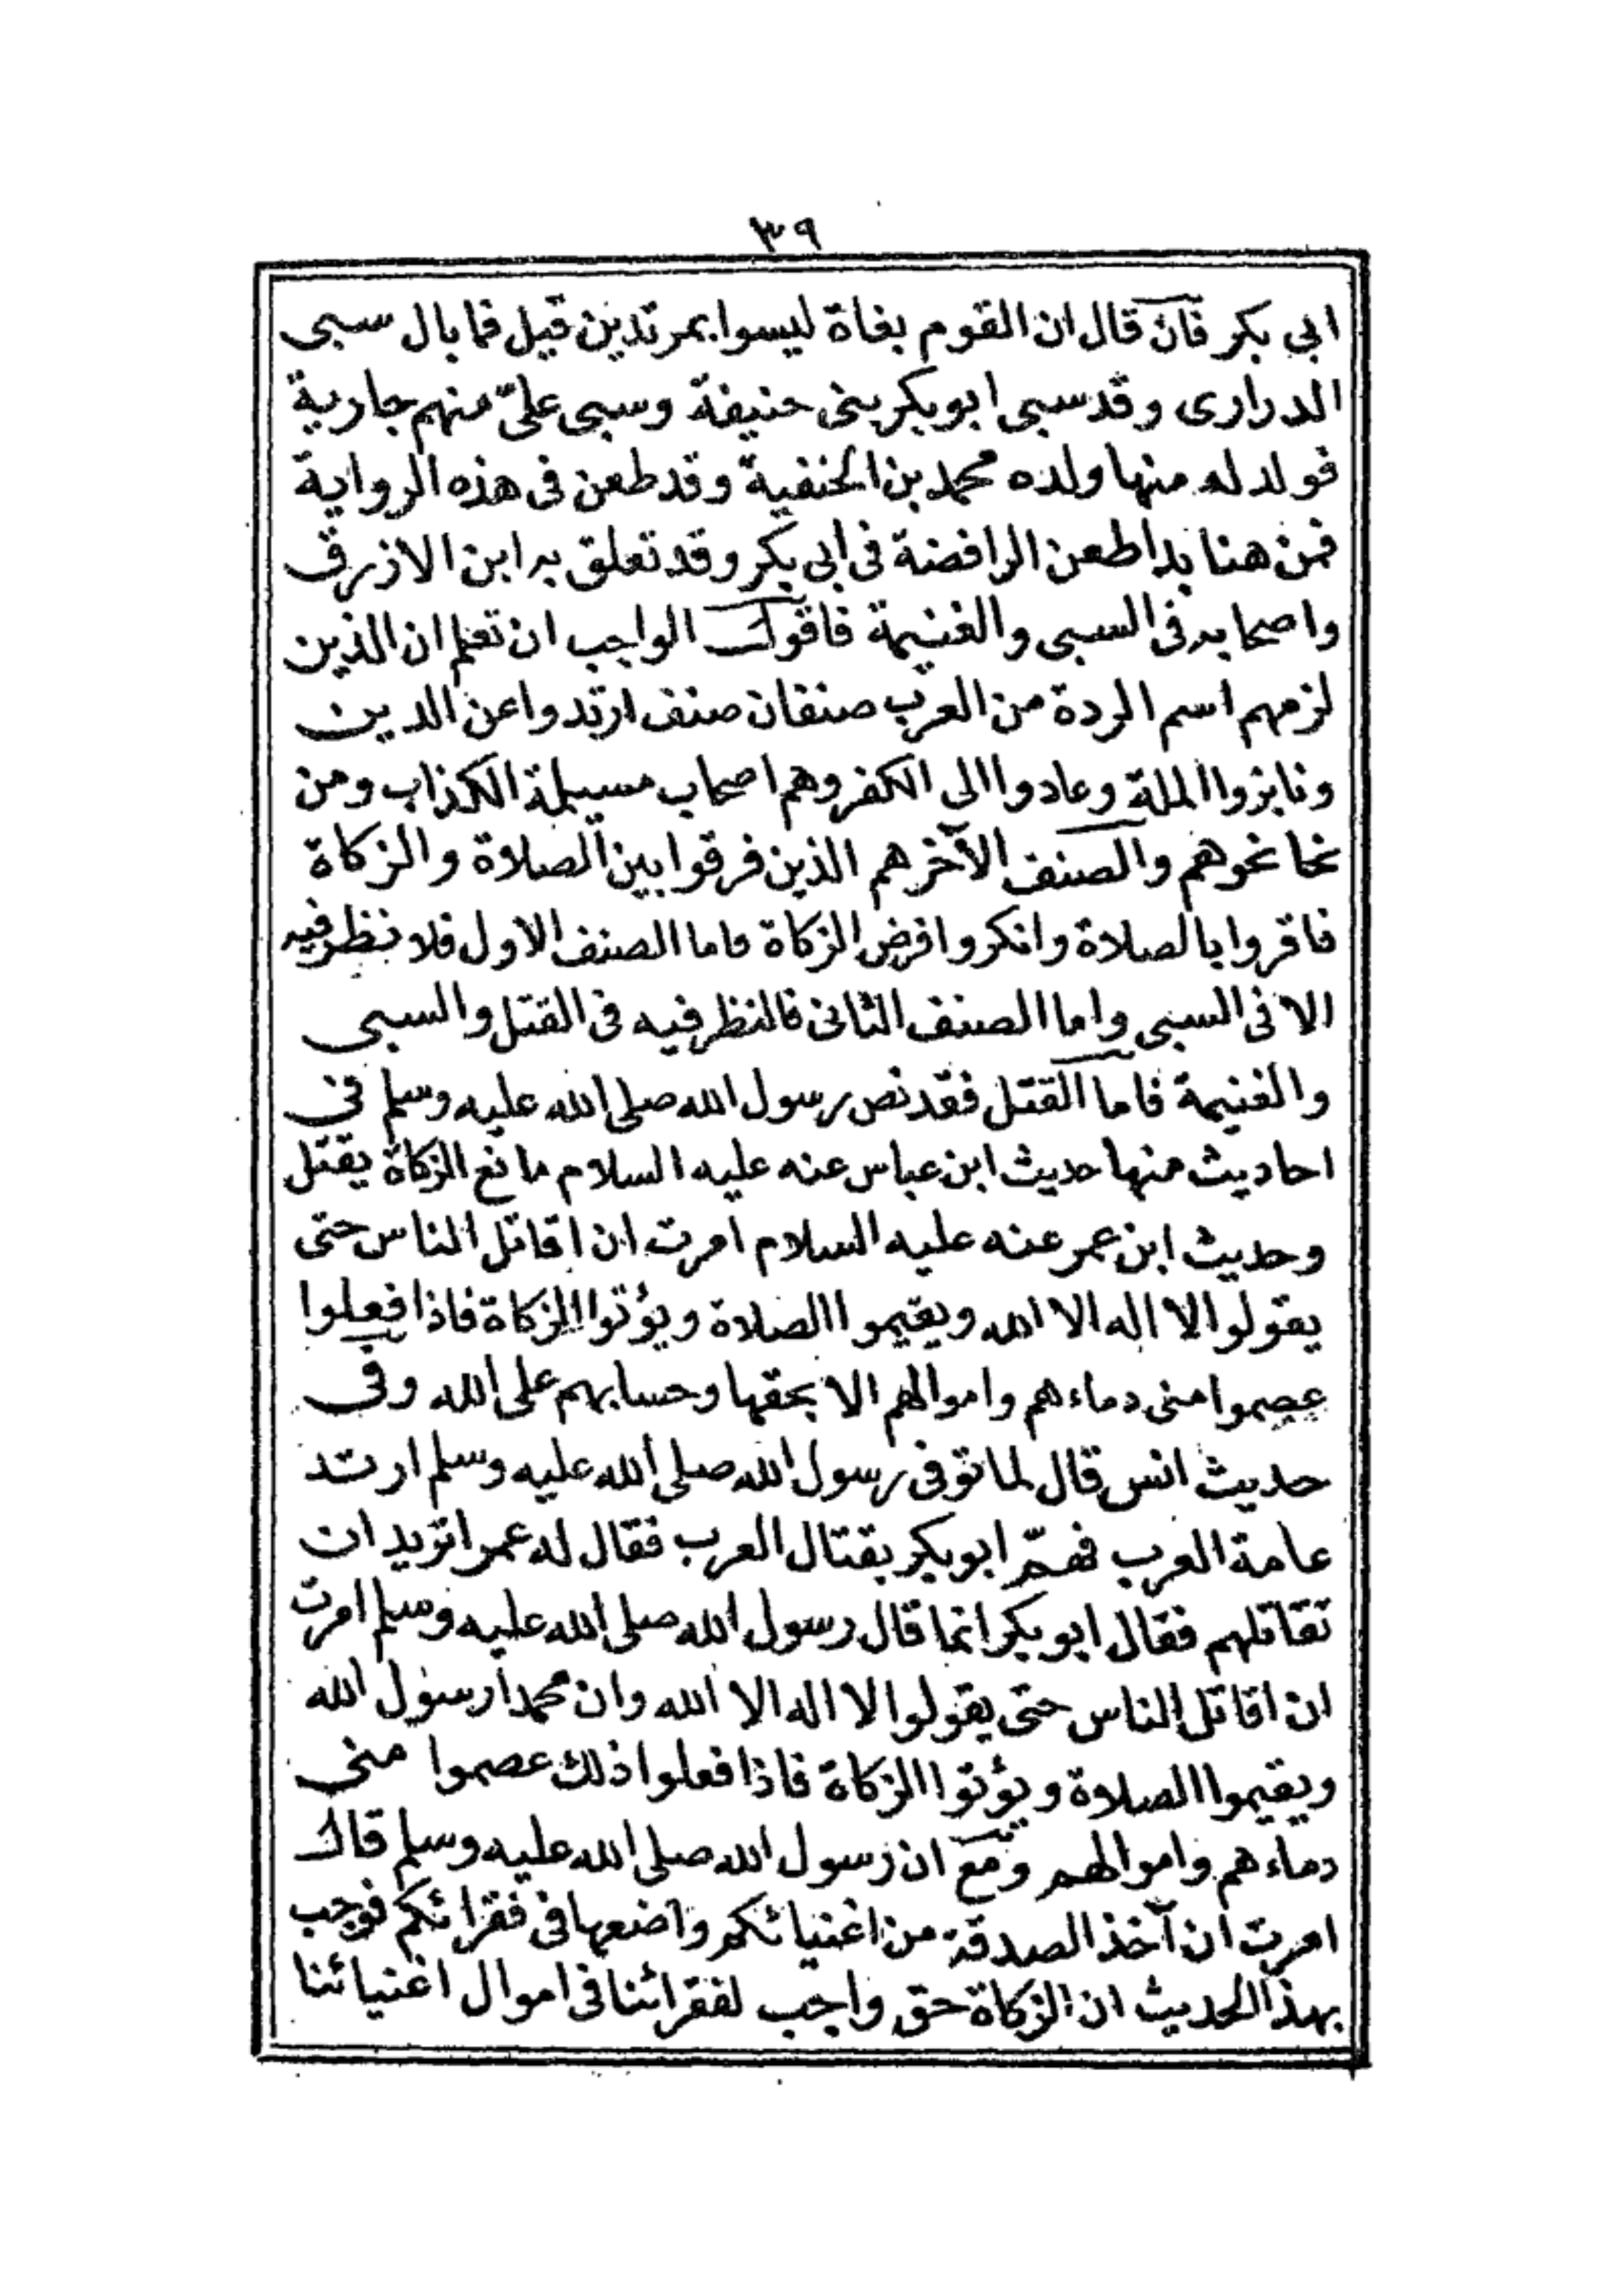 ٣٩
ابى بكر فان قال ان القوم بغاة ليسوا بمرتدين قيل فما بال سبى
الدرارى وقد سبى ابو بكر بنى حنيفة وسبى علىّ منهم جارية
فولد له منها ولده محمد بن الحنفية وقد طعن فى هذه الرواية
فمن هنا بدا طعن الرافضة فى ابى بكر وقد تعلق به ابن الازرق
واصحابه فى السبى والغنيمة فاقول الواجب ان تعلم ان الذين
لزمهم اسم الردة من العرب صنفان صنف ارتدوا عن الدين
ونابزوا الملة وعادوا الى الكفر وهم اصحاب مسيلمة الكذاب ومن
نحا نحوهم والصنف الآخر هم الذين فرقوا بين الصلاة والزكاة
فاقروا بالصلاة وانكروا فرض الزكاة فاما الصنف الاول فلا نظر فيه
الا فى السبى واما الصنف الثانى فالنظر فيه فى القتل والسبى
والغنيمة فاما القتل فقد نص رسول الله صلى الله عليه وسلم فى
احاديث منها حديث ابن عباس عنه عليه السلام مانع الزكاة يقتل
وحديث ابن عمر عنه عليه السلام امرت ان اقاتل الناس حتى
يقولوا لا اله الا الله ويقيموا الصلاة ويؤتوا الزكاة فاذا فعلوا
عصموا منى دماءهم واموالهم الا بحقها وحسابهم على الله وفى
حديث انس قال لما توفى رسول الله صلى الله عليه وسلم ارتد
عامة العرب فهمّ ابو بكر بقتال العرب فقال له عمر اتريد ان
تقاتلهم فقال ابو بكر انما قال رسول الله صلى الله عليه وسلم امرت
ان اقاتل الناس حتى يقولوا لا اله الا الله وان محمدا رسول الله
ويقيموا الصلاة ويؤتوا الزكاة فاذا فعلوا ذلك عصموا منى
دماءهم واموالهم ومع ان رسول الله صلى الله عليه وسلم قال
امرت ان آخذ الصدقة من اغنيائكم واضعها فى فقرائكم فوجب
بهذا الحديث ان الزكاة حق واجب لفقرائنا فى اموال اغنيائنا